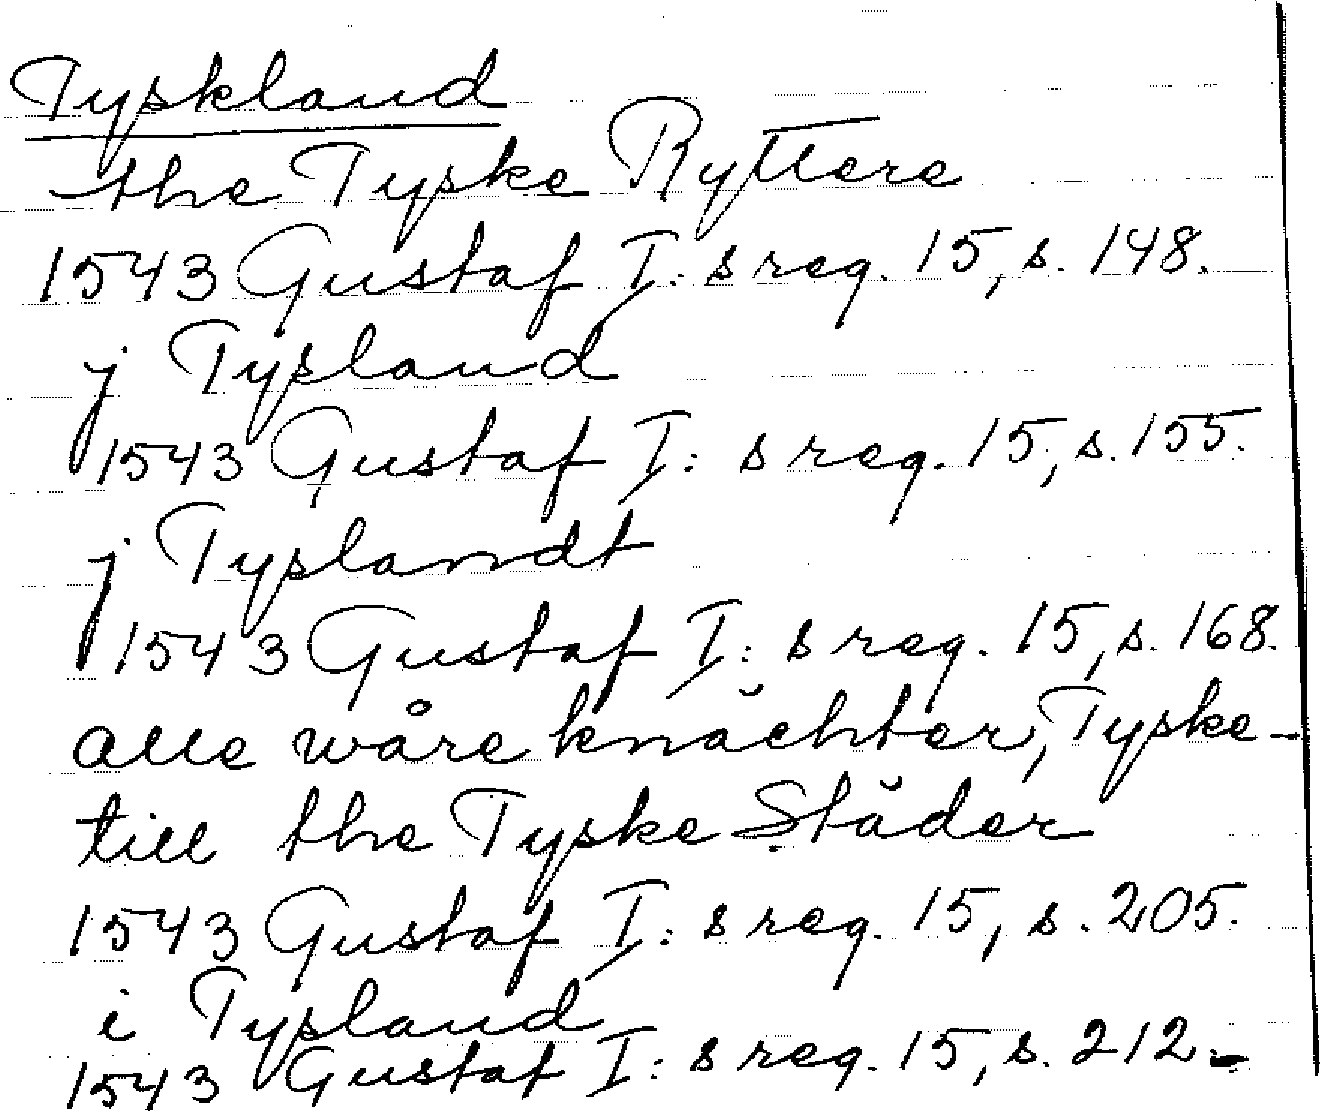 Tyskland
the Tyske Ryttere
1543 Gustaf I: s reg. 15, s. 148.
j Tysland
1543 Gustaf I: s reg. 15, s. 155.
j Tyslandt
1543 Gustaf I: s reg. 15, s. 168.
alle wåre knächter, Tyske -
till the Tyske Städer
1543 Gustaf I: s reg. 15, s. 205.
i Tysland
1543 Gustaf I: s reg. 15, s. 212.